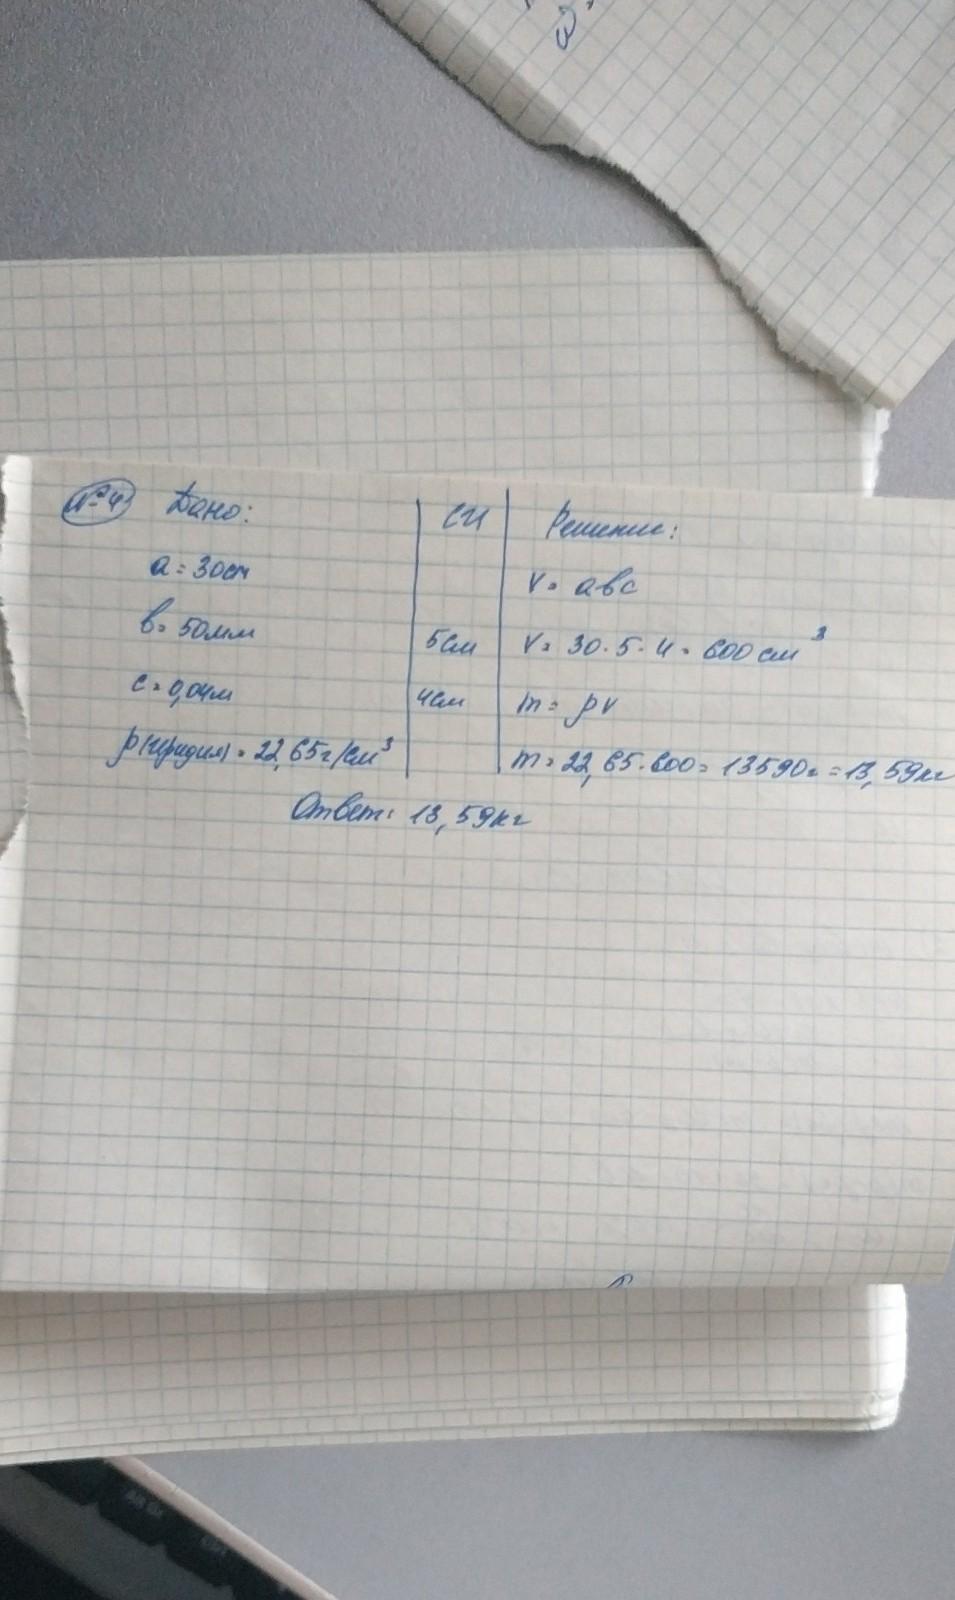 №4 Дано: СИ Решение:
a = 30см V = abc
b = 50мм 5см V = 30·5·4 = 600 см³
c = 0,04м 4см m = ρV
ρ(иридия) = 22,65г/см³ m = 22,65·600 = 13590г = 13,59кг
Ответ: 13,59кг